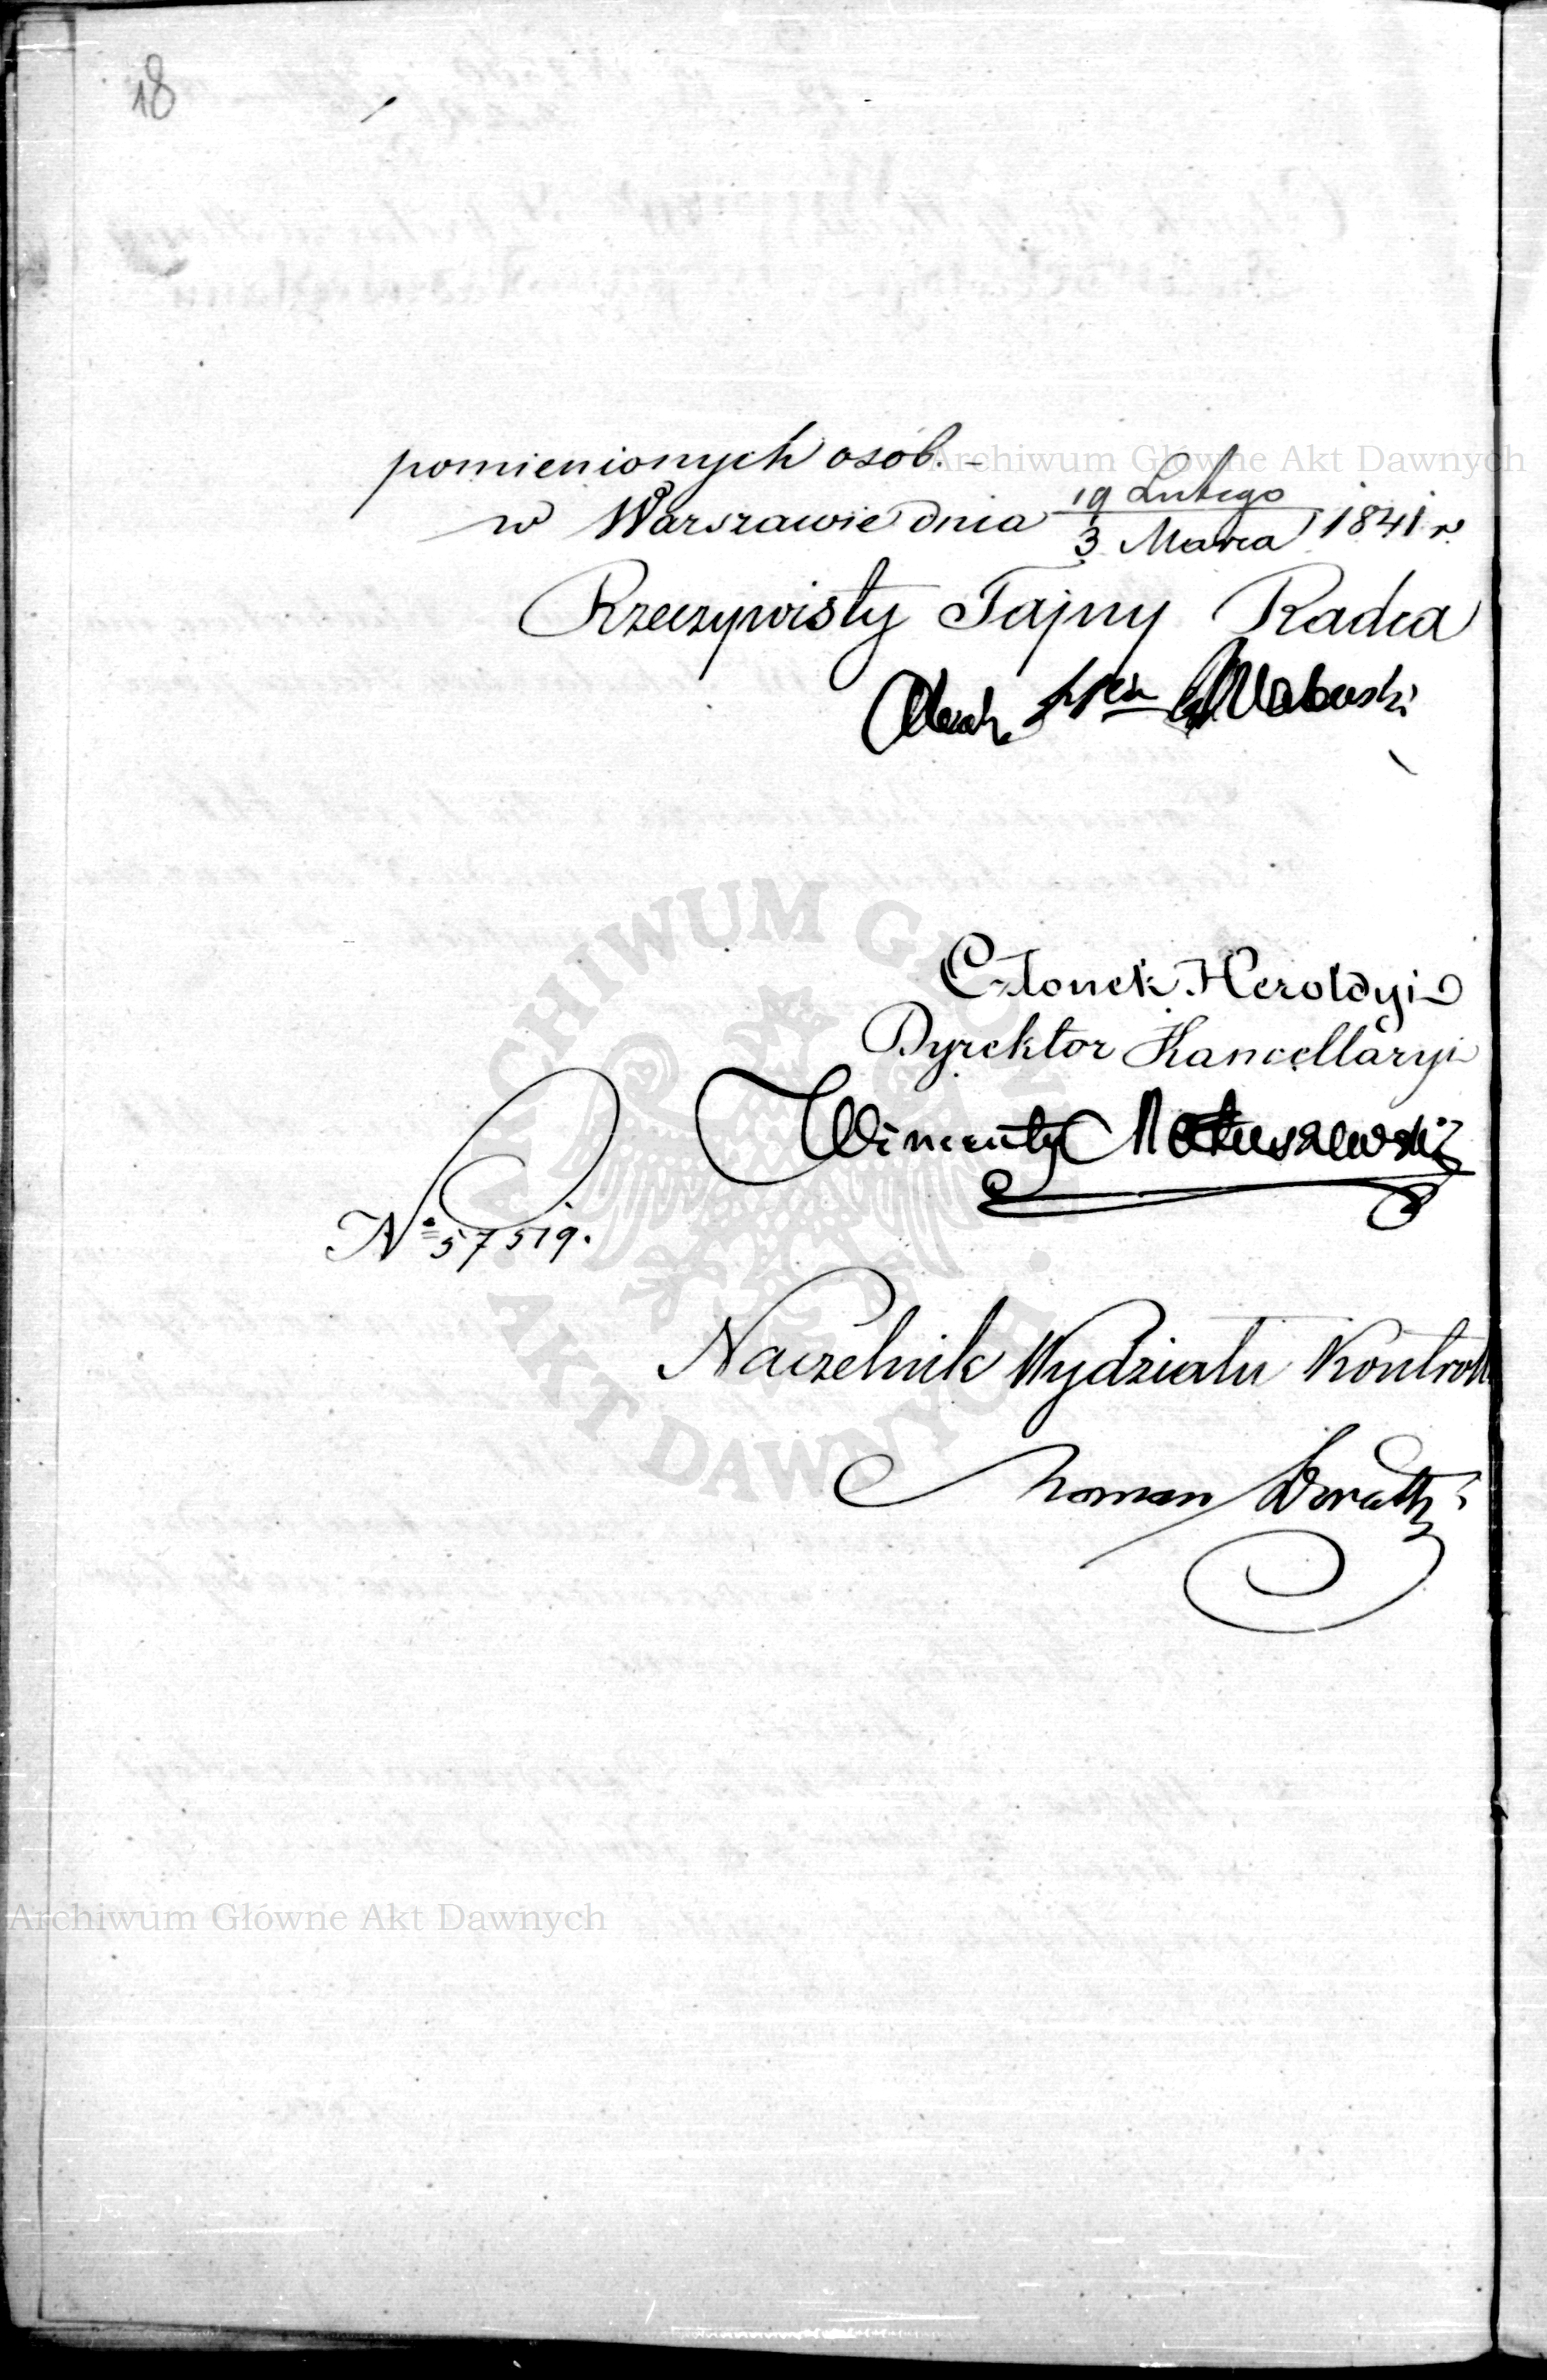 18
pomienionych osób. –
w Warszawie dnia 19 Lutego / 3 Marca 1841 r.
Rzeczywisty Tajny Radca
Członek Heroldyi
Dyrektor Kancellaryi
Wincenty Matuszewski
Nº 57519.
Naczelnik Wydziału Kontroli
Roman
Archiwum Główne Akt Dawnych
ARCHIWUM GŁÓWNE · AKT DAWNYCH ·
Archiwum Główne Akt Dawnych